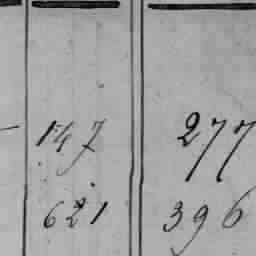 147 277
621 396